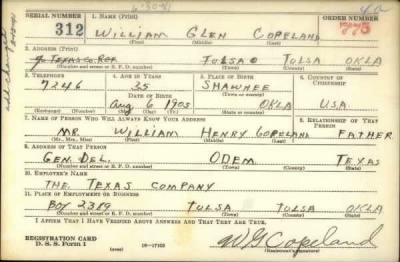 6-30-41
SERIAL NUMBER 1. NAME (Print) ORDER NUMBER
312 WILLIAM GLEN COPELAND 775
(First) (Middle) (Last)
2. ADDRESS (Print)
% TEXAS CO. REF TULSA TULSA OKLA
(Number and street or R. F. D. number) (Town) (County) (State)
3. TELEPHONE 4. AGE IN YEARS 5. PLACE OF BIRTH 6. COUNTRY OF CITIZENSHIP
7246 35 SHAWNEE
DATE OF BIRTH
AUG 6 1905 OKLA U.S.A.
(Exchange) (Number) (Mo.) (Day) (Yr.) (State or country)
7. NAME OF PERSON WHO WILL ALWAYS KNOW YOUR ADDRESS 8. RELATIONSHIP OF THAT PERSON
MR. WILLIAM HENRY COPELAND FATHER
(Mr., Mrs., Miss) (First) (Middle) (Last)
9. ADDRESS OF THAT PERSON
GEN. DEL. ODEM. TEXAS
(Number and street or R. F. D. number) (Town) (County) (State)
10. EMPLOYER'S NAME
THE TEXAS COMPANY
11. PLACE OF EMPLOYMENT OR BUSINESS
BOX 2389 TULSA TULSA OKLA
(Number and street or R. F. D. number) (Town) (County) (State)
I AFFIRM THAT I HAVE VERIFIED ABOVE ANSWERS AND THAT THEY ARE TRUE.
REGISTRATION CARD
D. S. S. Form 1 (over) 16-17105 W G Copeland
(Registrant's signature)